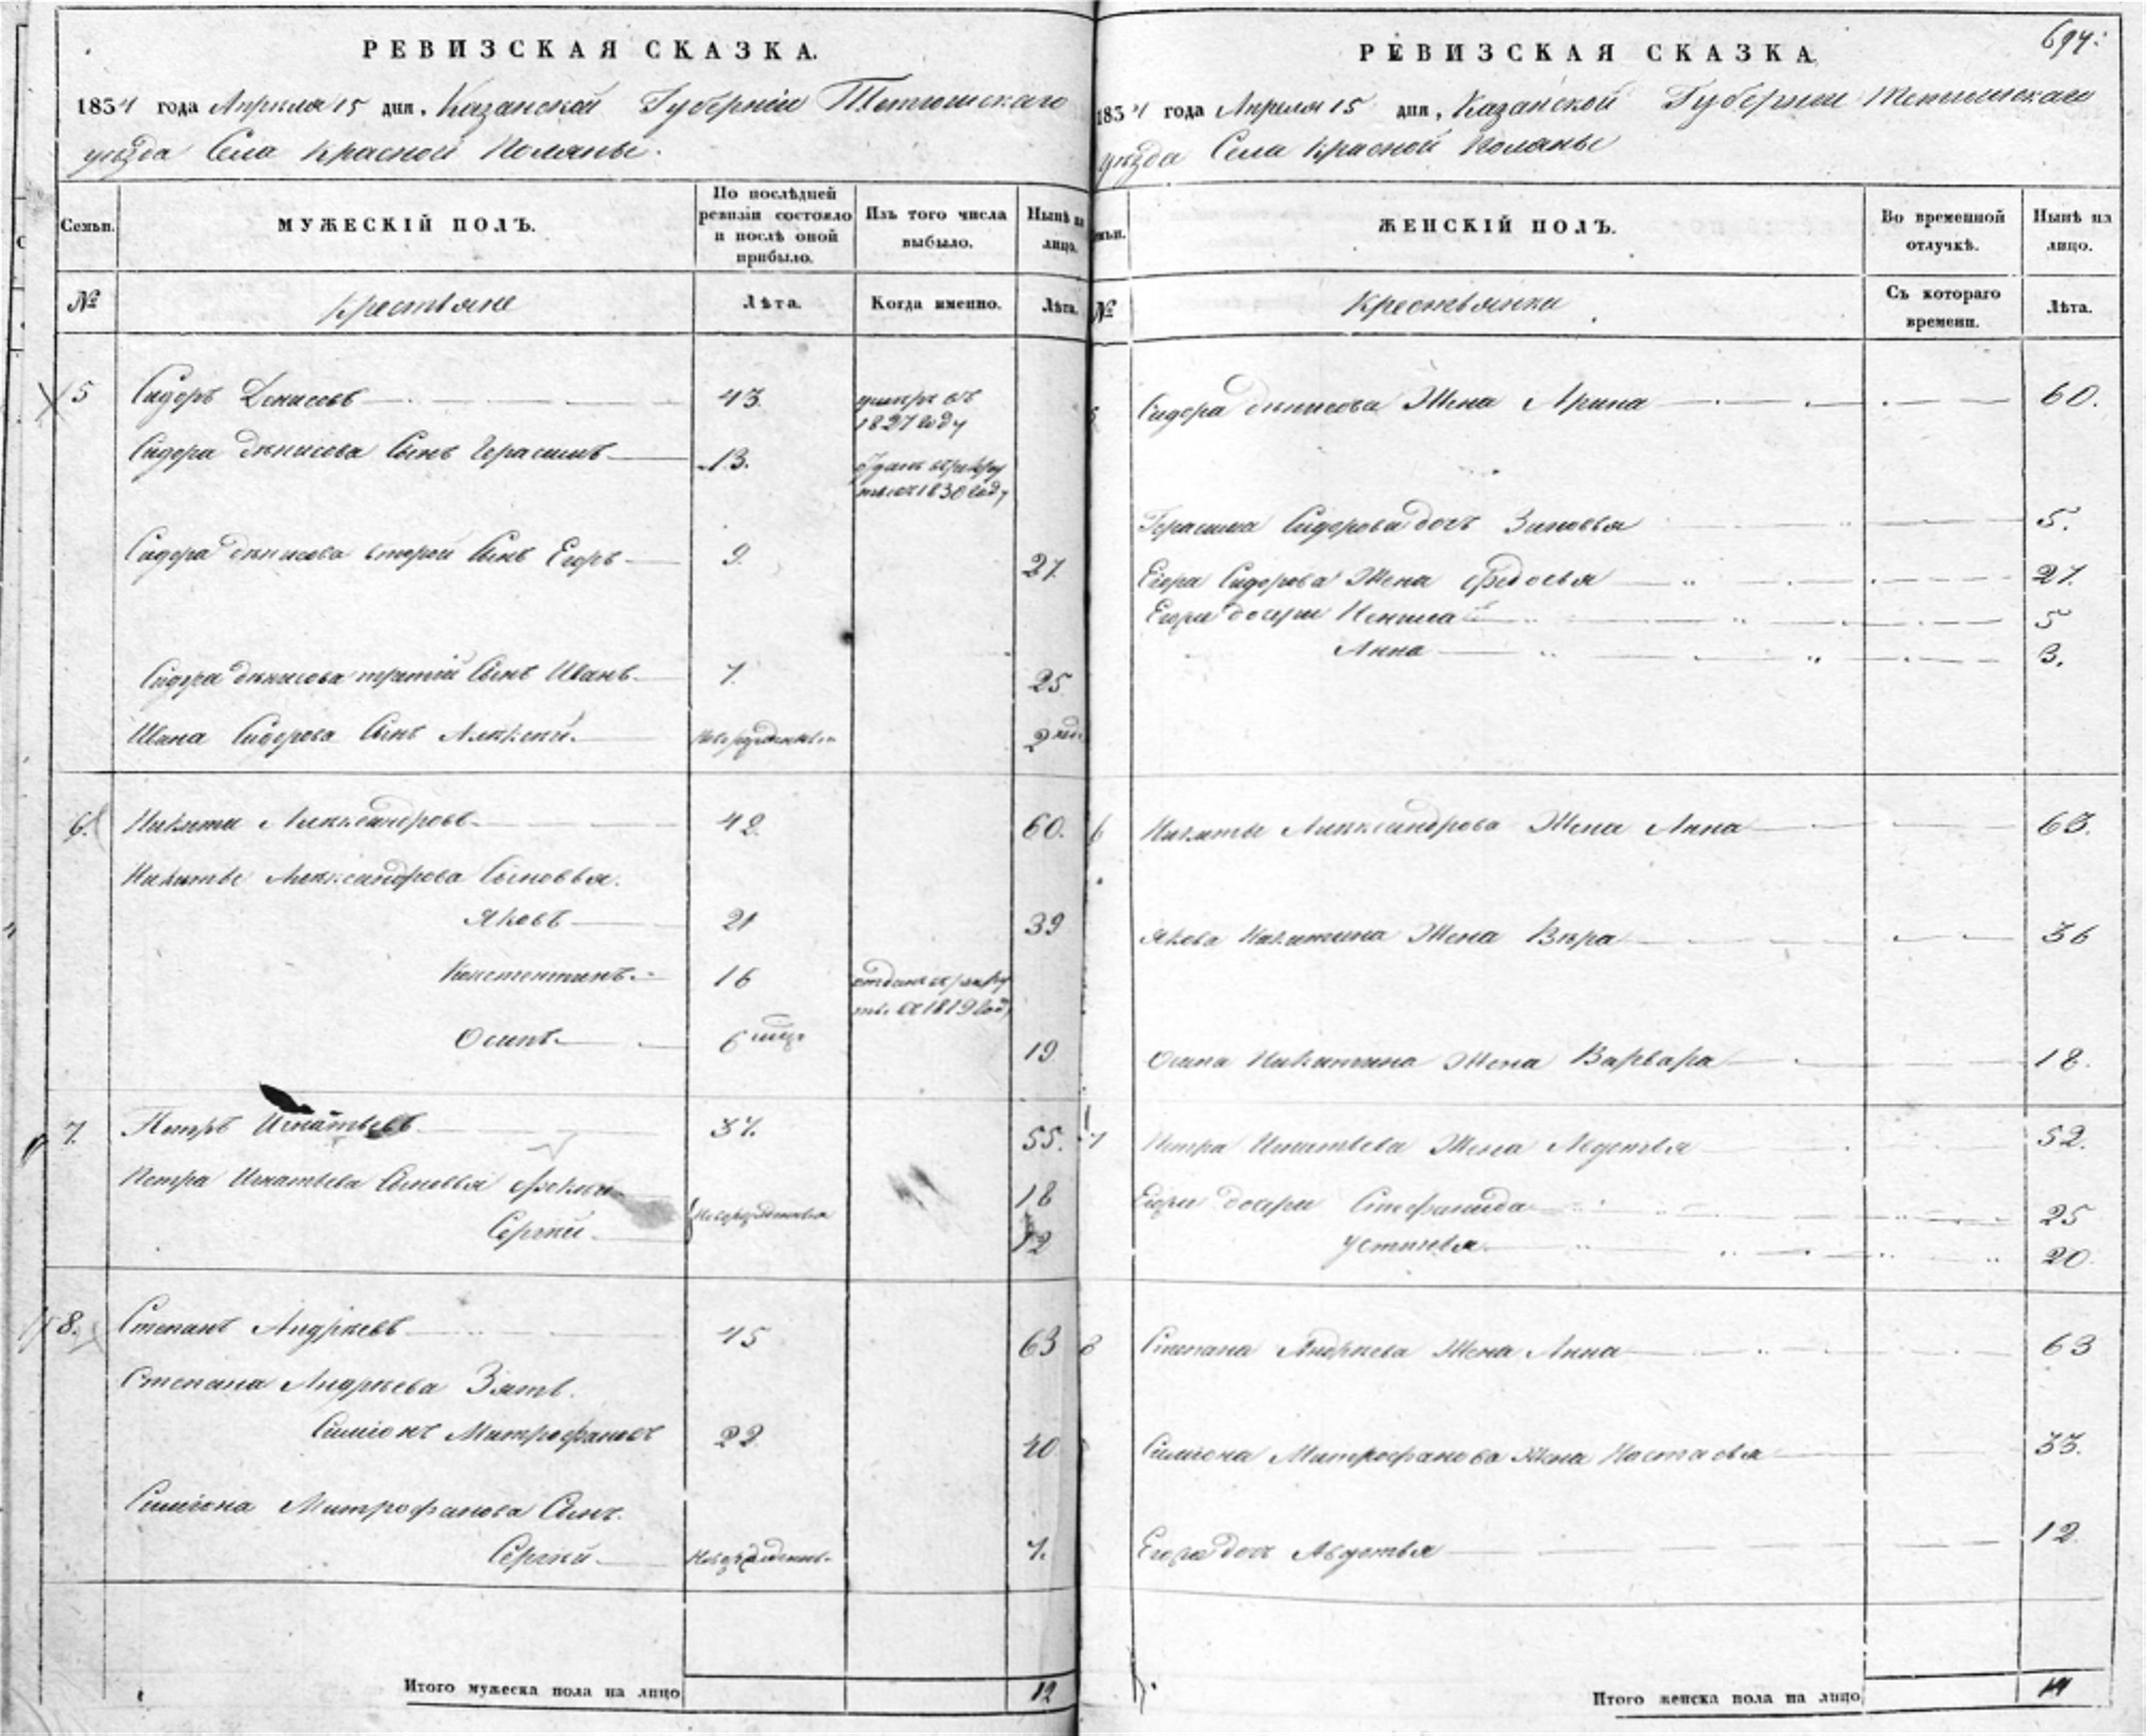 РЕВИЗСКАЯ СКАЗКА.
1834 года Апреля 15 дня, Казанской Губернии Тетюшскаго
уезда Села Красной Поляны.
Семьи.
МУЖЕСКІЙ ПОЛЪ.
По послѣдней ревизіи состояло и послѣ оной прибыло.
Изъ того числа выбыло.
Нынѣ на лицо.
№
Крестьяне
Лѣта.
Когда именно.
Лѣта.
5 Сидоръ Денисовъ 43 умре въ
1827 году
Сидора денисова Сынъ Герасимъ 13.
1830 году
Сидора денисова второй Сынъ Егоръ 9 27
Сидора денисова третий Сынъ Иванъ 7 25
Ивана Сидорова Сынъ Алексей новорожденный 2
6. Никита Александровъ 42 60.
Никиты Александрова Сыновья.
Яковъ 21 39
Констентинъ 16 отданъ в рекру
ты въ 1819 году
Осипъ 6 19
7. Петръ Игнатьевъ 37. 55.
Петра Игнатьева Сыновья
Сергей новорожденныя 18
12
8. Степанъ Андреевъ 45 63
Степана Андреева Зять.
Симіонъ Митрофановъ 22 40
Симіона Митрофанова Сынъ.
Сергей новорожденный 7.
Итого мужеска пола на лицо 12
694.
РЕВИЗСКАЯ СКАЗКА
1834 года Апреля 15 дня, Казанской Губернии Тетюшскаго
уезда Села Красной Поляны
ЖЕНСКІЙ ПОЛЪ.
Во временной отлучкѣ.
Нынѣ на лицо.
№
Крестьянки
Съ котораго времени.
Лѣта.
Сидора денисова Жена Арина 60.
Герасима Сидорова дочь Зиновья 5.
Егора Сидорова Жена Федосья 27.
Егора дочери Ненила 5
Анна 3.
6 Никиты Александрова Жена Анна 63.
Якова Никитина Жена Вера 36
Осипа Никитина Жена Варвара 18.
7 Петра Игнатьева Жена Авдотья 52.
Егора дочери Стефанида 25
Устинья 20
8 Степана Андреева Жена Анна 63
Симіона Митрофанова Жена Настасья 33.
Егора дочь Авдотья 12
Итого женска пола на лицо 14